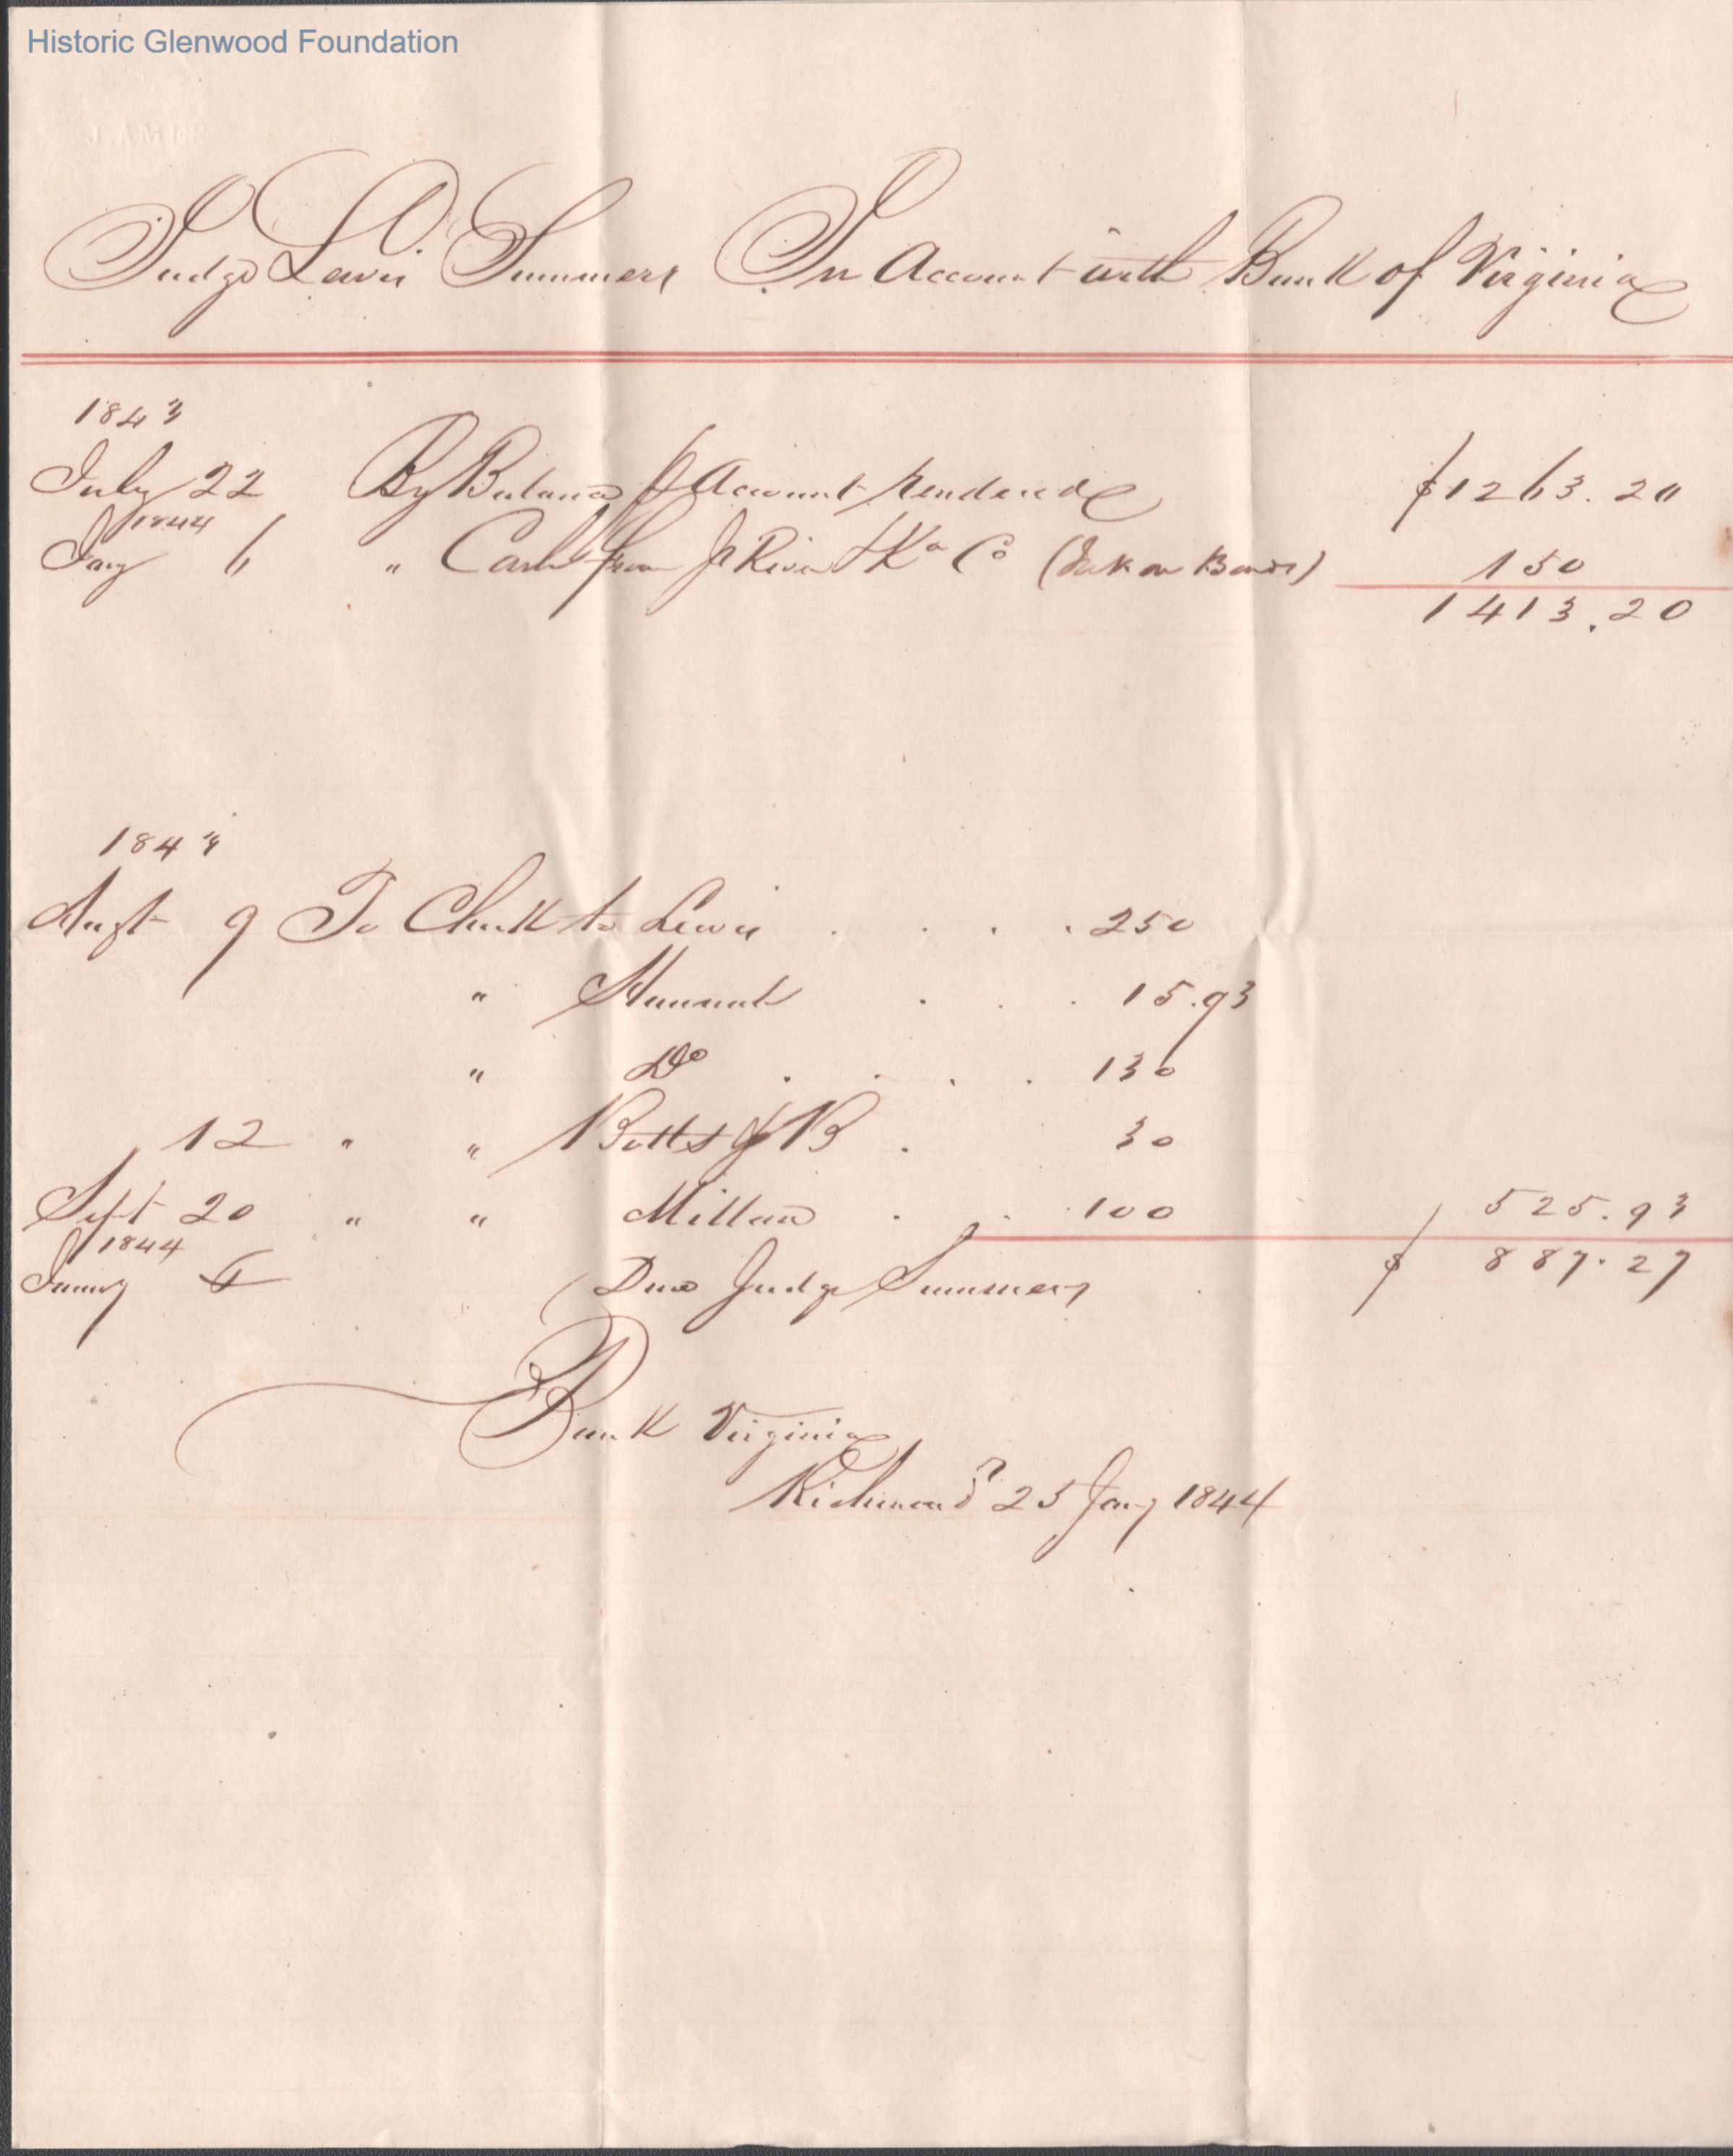 Historic Glenwood Foundation
JAMES
Judge Lewis Summers In Account with Bank of Virginia
1843
July 22 By Balance p Account rendered $1263.20
1844
Jany 6 " Cash from Js River & Ka Co (Int on Bonds) 150
1413.20
1843
Augt 9 To Check to Lewis . . . . 250
" Hannah . . . 15.93
" Do . . . . 130
12 " " Botts & B . 30
Sept 20 " " . . . 100 525.93
1844
Jany 6 Due Judge Summers $ 887.27
Bank Virginia
Richmond 25 Jany 1844